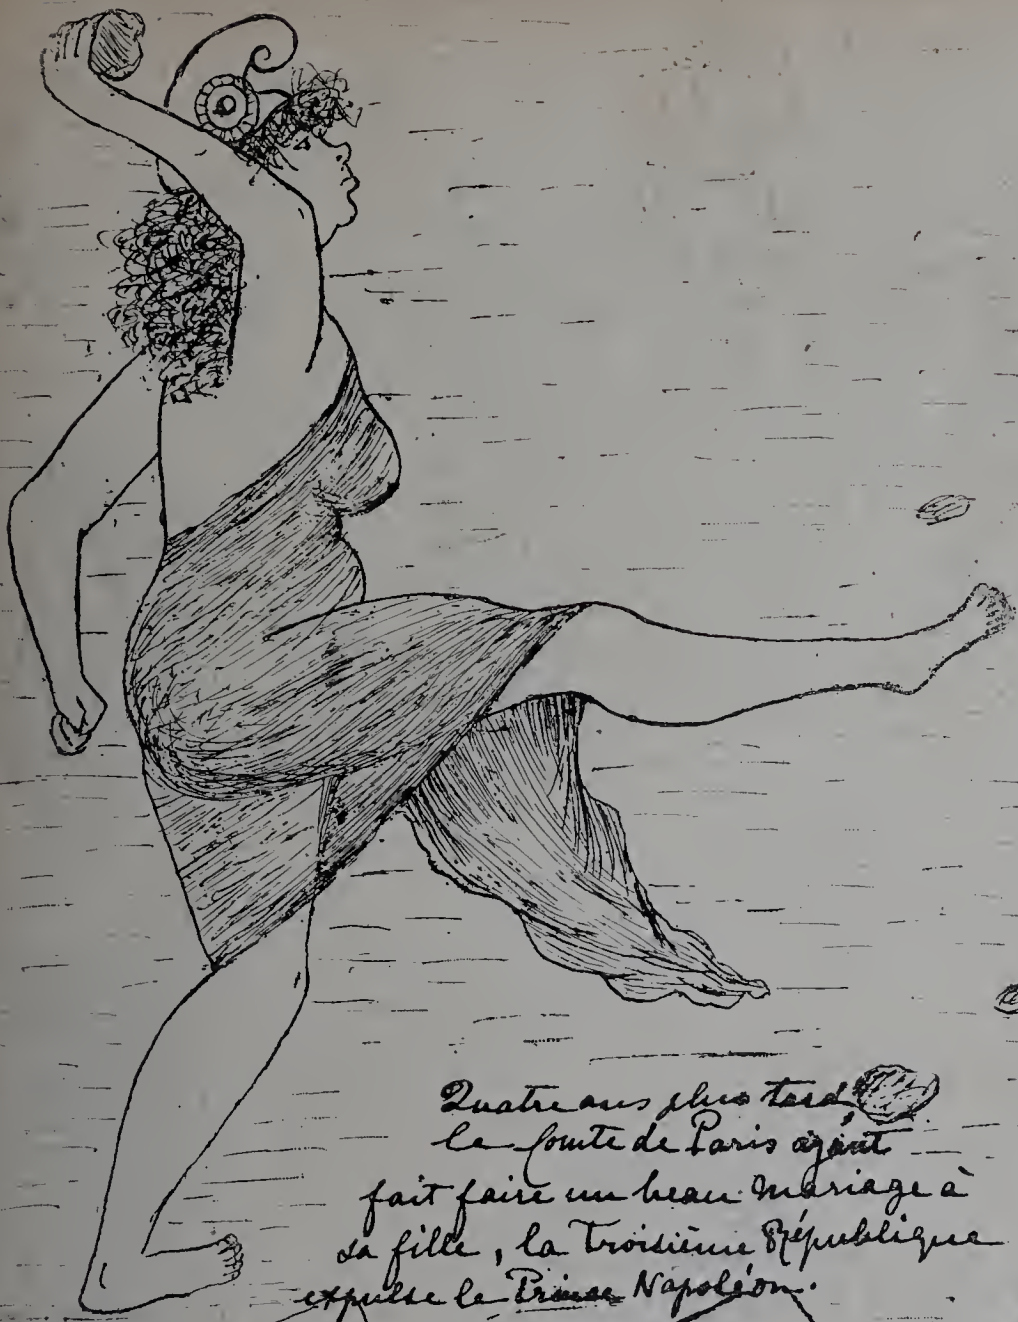 Quatre ans plus tard,
le Comte de Paris ayant
fait faire un beau mariage à
sa fille, la Troisième République
expulse le Prince Napoléon.